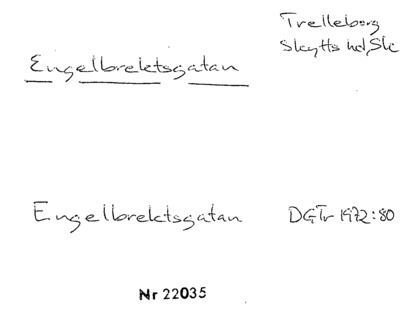 Trelleborg
Skytts hd, Sk
Engelbrektsgatan
Engelbrektsgatan DGTr 1972:80
Nr 22035